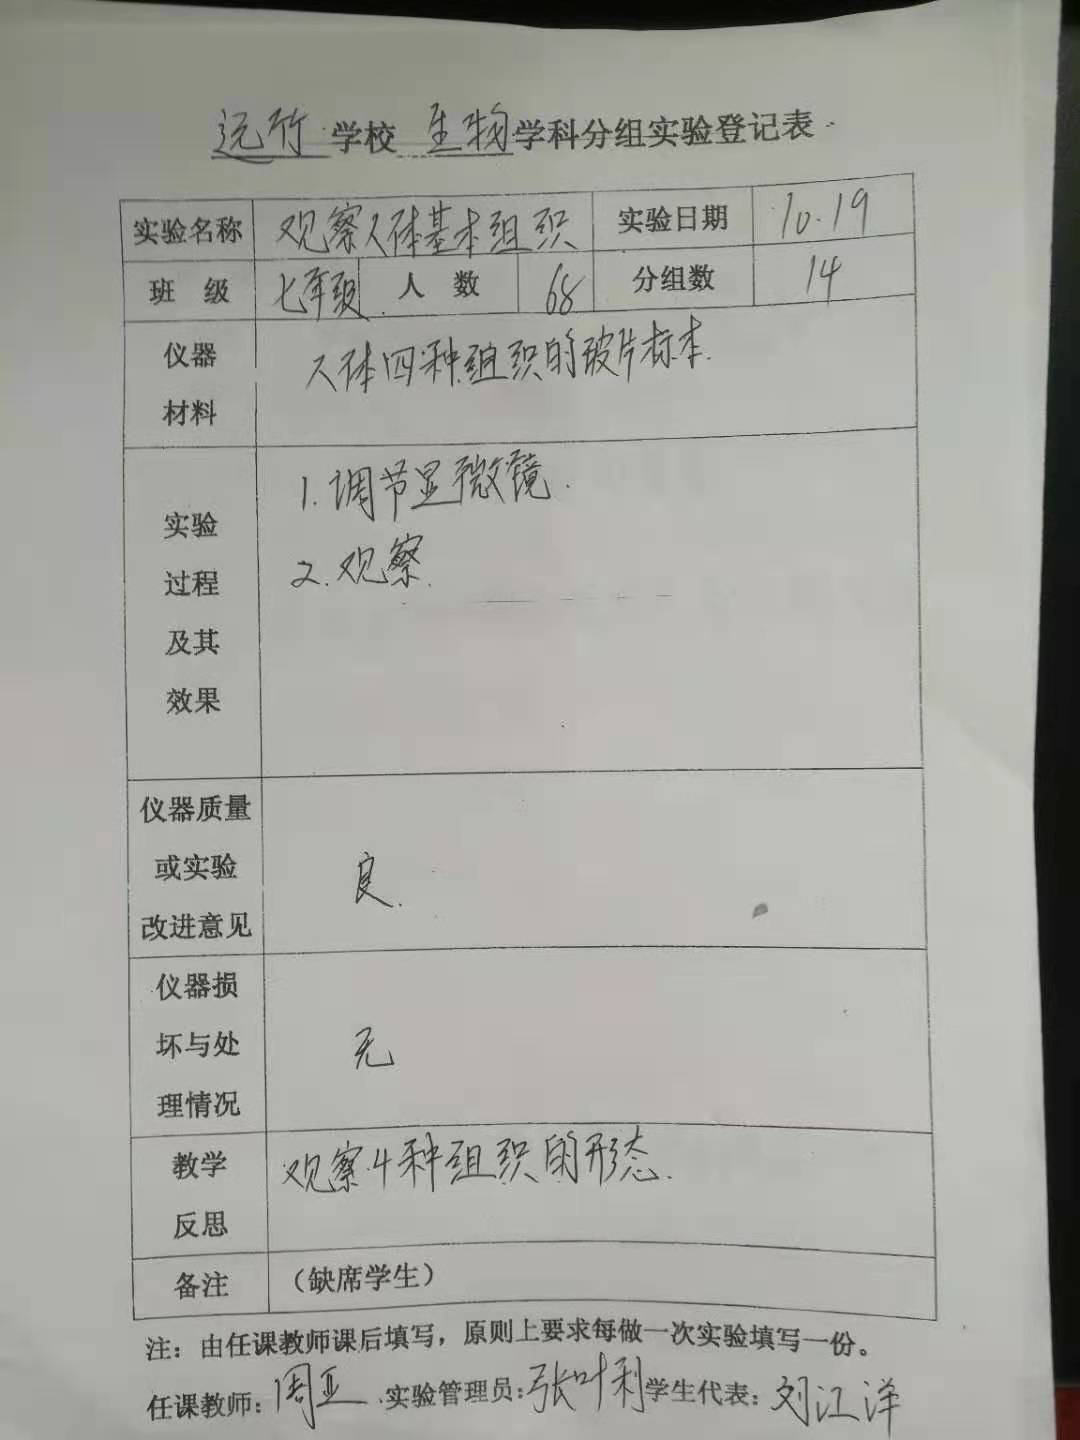 远竹学校生物学科分组实验登记表
实验名称 观察人体基本组织 实验日期 10.19
班 级 七年级 人 数 68 分组数 14
仪器
材料
人体四种组织的玻片标本.
实验
过程
及其
效果
1.调节显微镜.
2.观察.
仪器质量
或实验
改进意见
良.
仪器损
坏与处
理情况
无
教学
反思
观察4种组织的形态.
备注 （缺席学生）
注：由任课教师课后填写，原则上要求每做一次实验填写一份。
任课教师：周亚 实验管理员：张叶利 学生代表：刘江洋